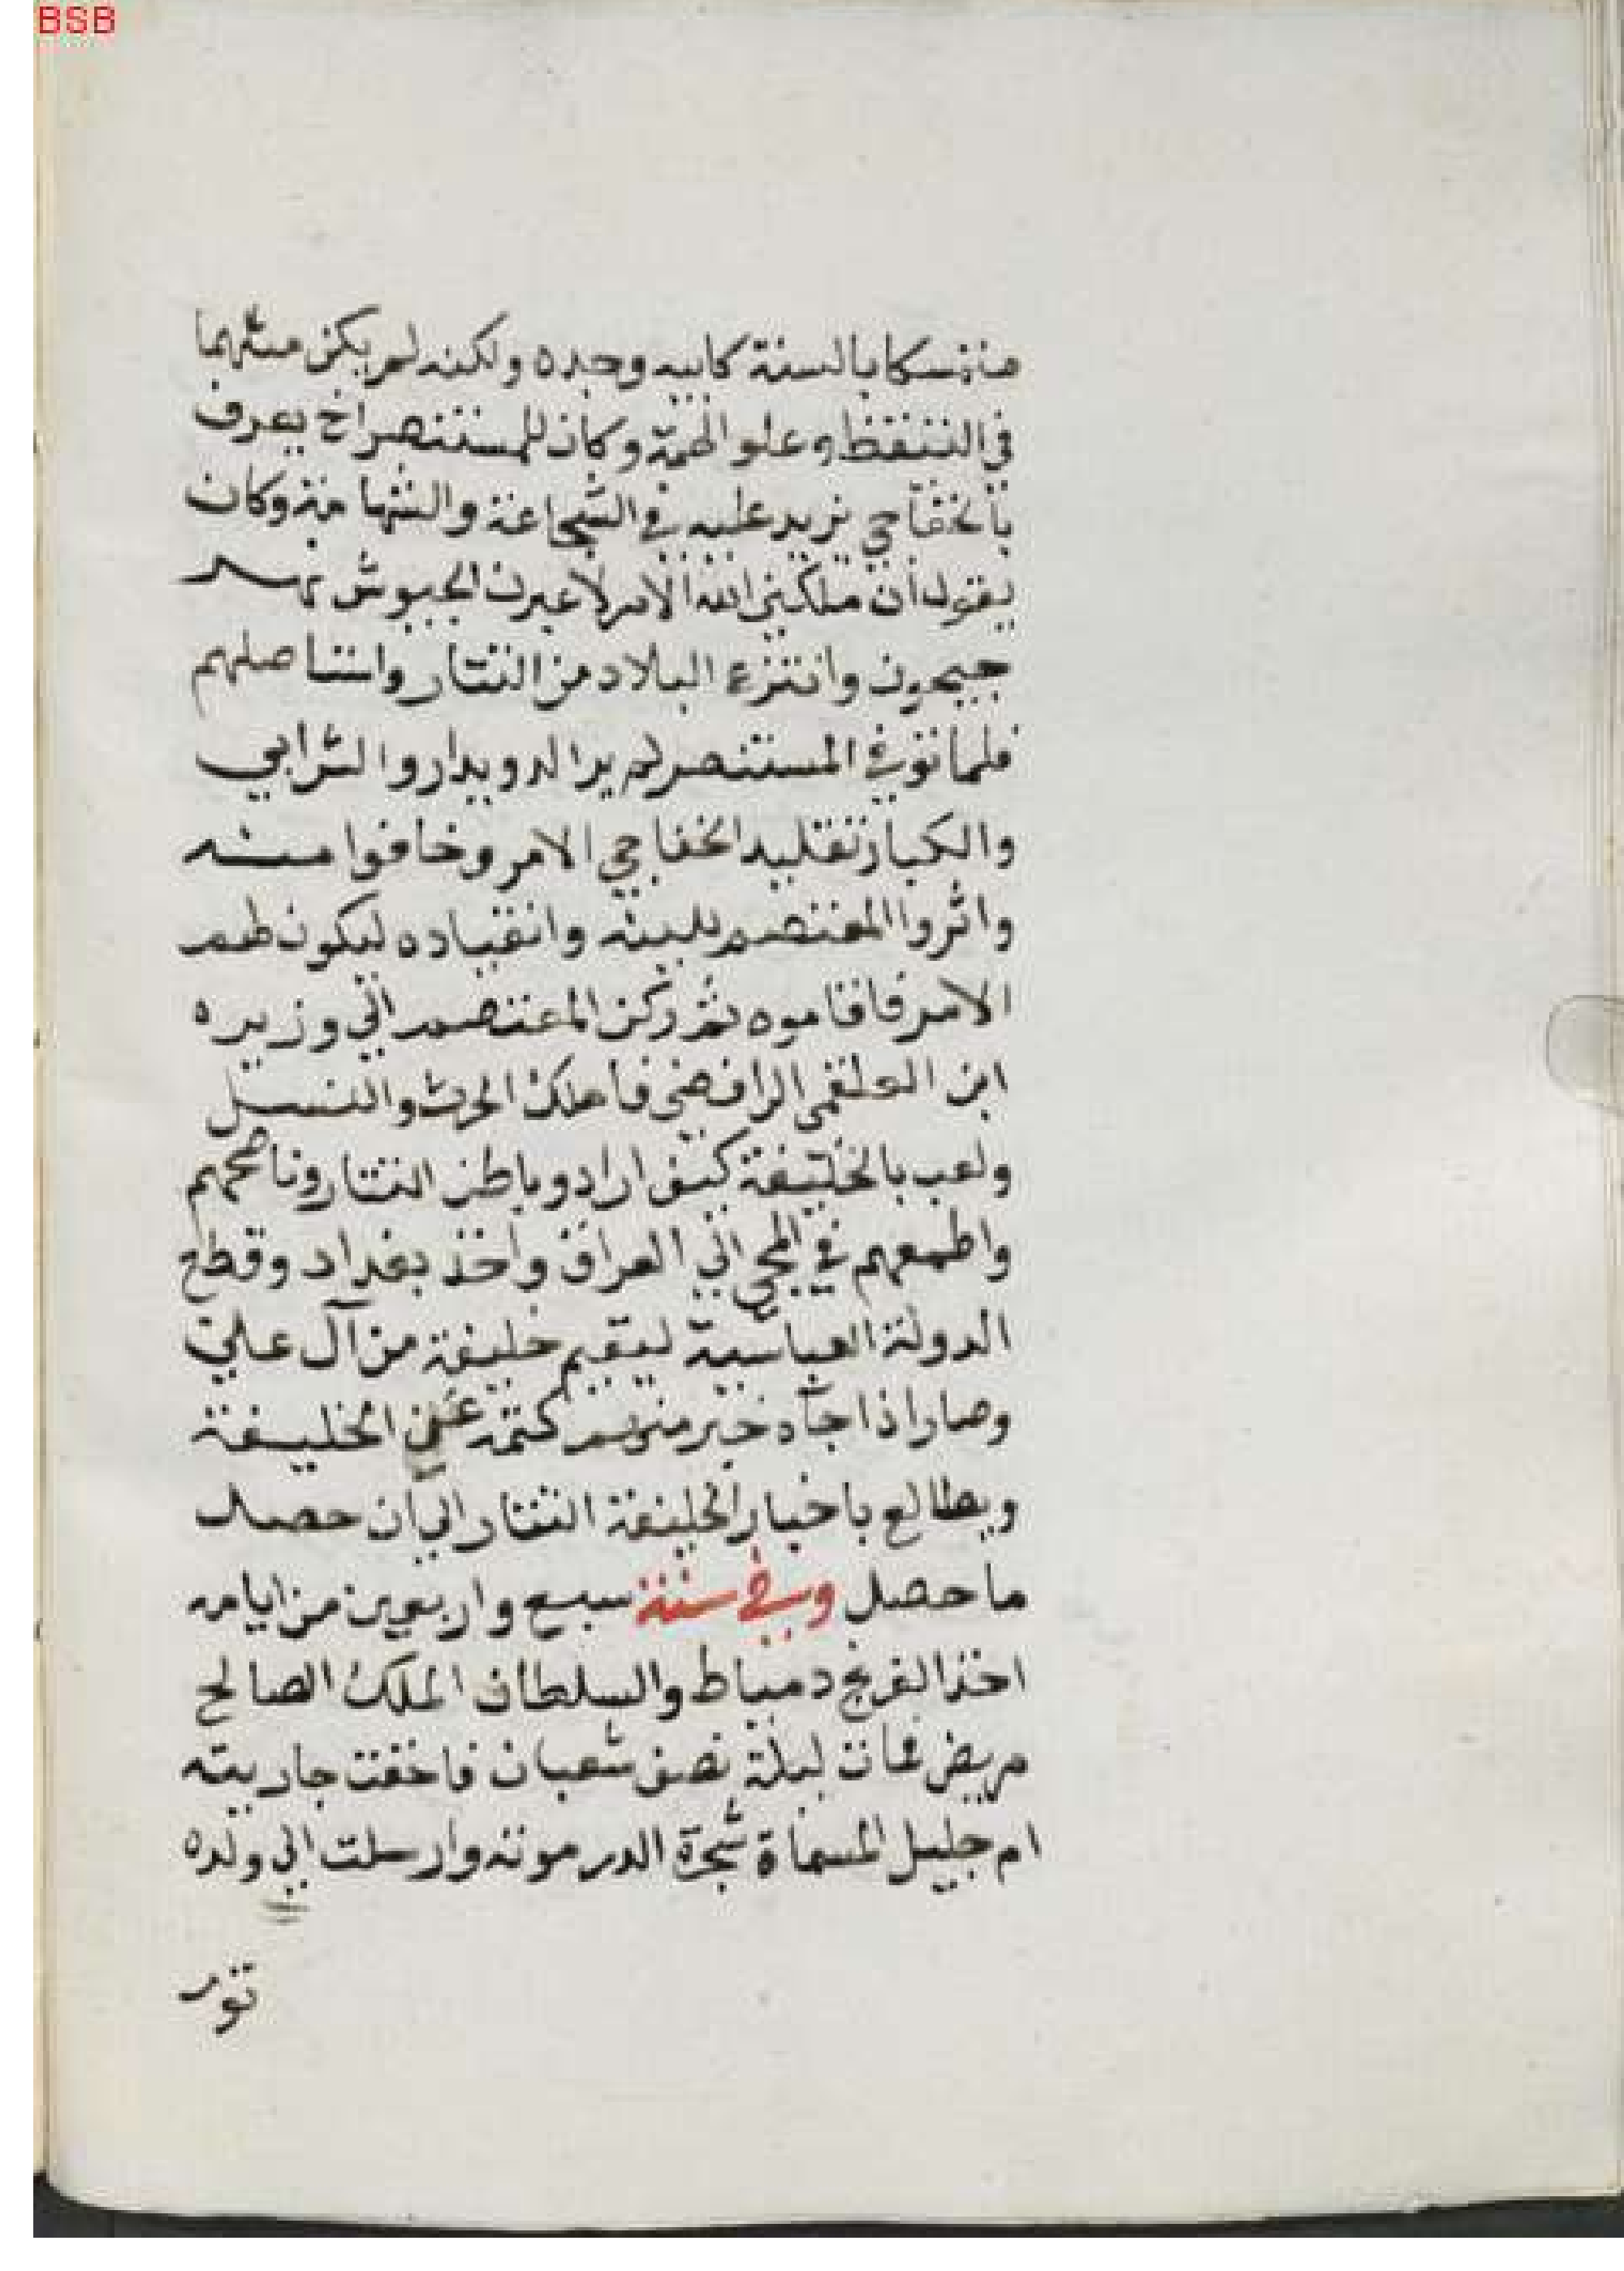 BSB
متمسكا بالسنة كابيه وجده ولكنه لم يكن مثلهما
في التيقظ وعلو الهمة وكان للمستنصر اخ يعرف
بالخفاجي يزيد عليه في الشجاعة والشهامة وكان
يقول ان ملكني الله الامر لاعبرن الجيوش نهر
جيحون وانتزع البلاد من التتار واستاصلهم
فلما توفي المستنصر لم ير الدويدار والشرابي
والكبار تقليد الخفاجي الامر وخافوا منه
واثروا المعتصم للينه وانقياده ليكون لهم
الامر فاقاموه ثم ركن المعتصم الي وزيره
ابن العلقمي الرافضي فاهلك الحرث والنسل
ولعب بالخليفة كيف اراد وباطن التتار وناصحهم
واطمعهم في المجي الي العراق واخذ بغداد وقطع
الدولة العباسية ليقيم خليفة من آل علي
وصار اذا جآه خبر منهم كتمه عن الخليفة
ويطالع باخبار الخليفة التتار الي ان حصل
ما حصل وفي سنة سبع واربعين من ايامه
اخذ الفرنج دمياط والسلطان الملك الصالح
مريض فمات ليلة نصف شعبان فاخفت جاريته
ام جليل المسماة شجرة الدر موته وارسلت الي ولده
تور